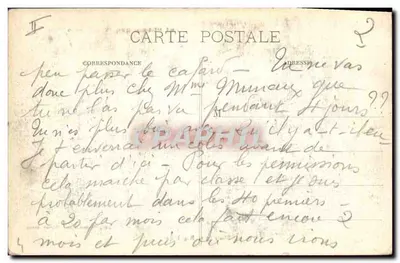 II 2
CARTE POSTALE
CORRESPONDANCE ADRESSE
peu passer le cafard – Tu ne vas
donc plus chez Mme Munaux que
tu ne l'as pas vu pendant 4 jours??
Tu n'es plus
Je t'enverrai un colis avant de
partir d'ici – Pour les permissions
cela marche par classe et je suis
probablement dans les 40 premiers –
à 20 par mois cela fait encore 2
mois et puis oui nous irons